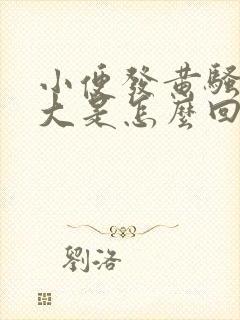 小便發黄騷
大是怎麼回
劉洛